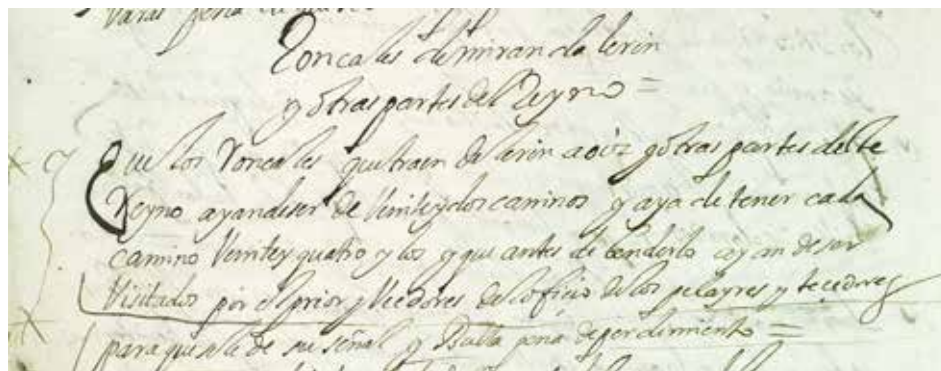 varas pena
Roncales de miranda lerin
y otras partes del Reyno =
Que los Roncales que traen de lerin aoiz y otras partes deste
Reyno ayan de ser de Veinte y dos caminos y aya de tener cada
camino Veinte y quatro ylos y que antes de benderlo ayan de ser
Visitados por el prior y Veedores del oficio de los pelayres y texedores
para que se le de su señal y Bulla pena de perdimiento =